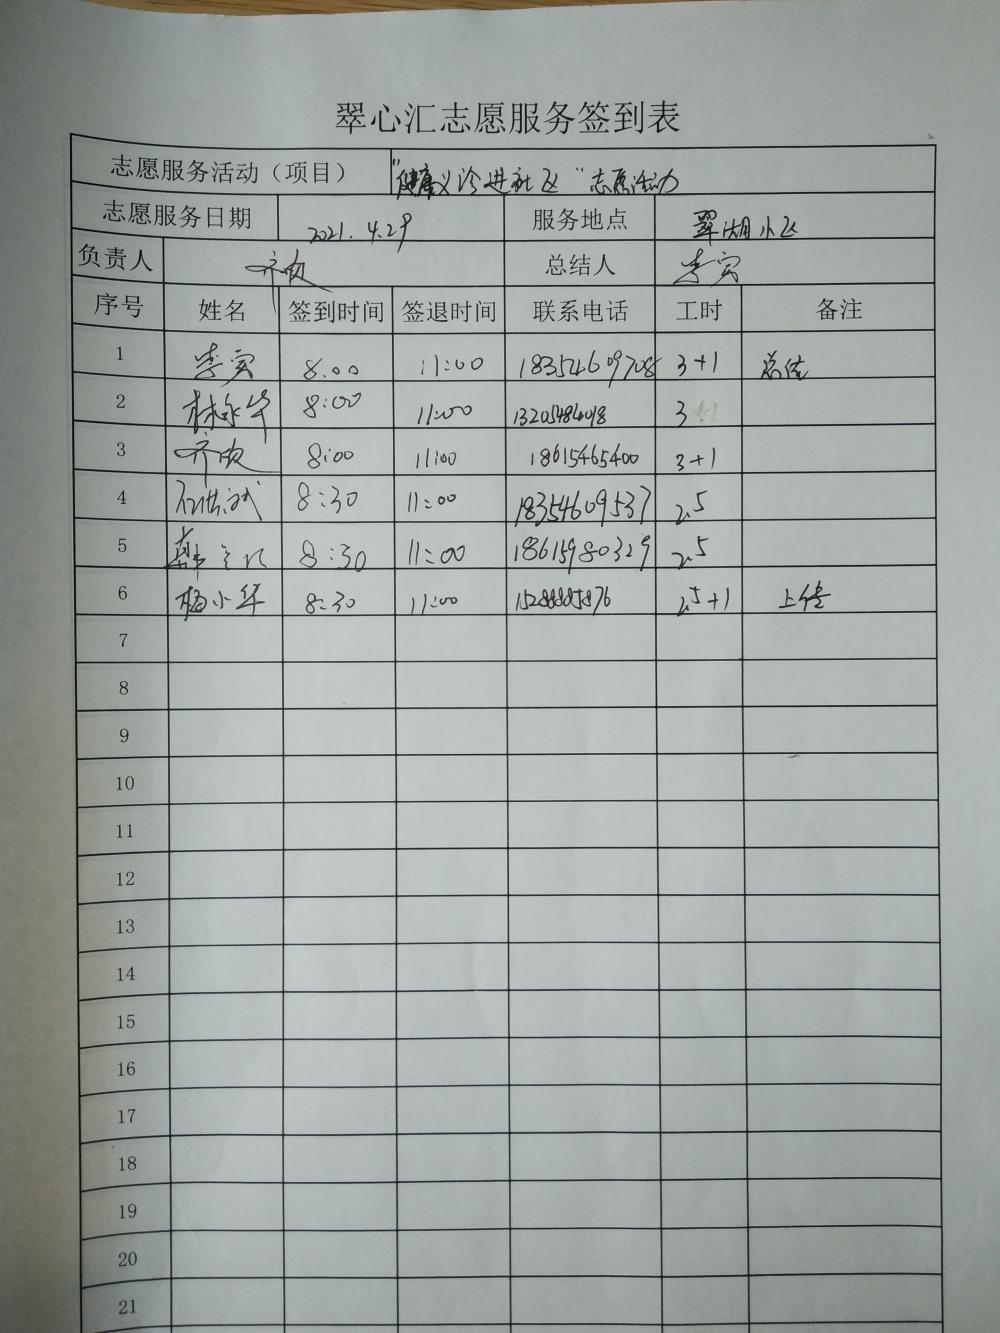 翠心汇志愿服务签到表
志愿服务活动（项目） "健康义诊进社区"志愿活动
志愿服务日期 2021.4.29 服务地点 翠湖小区
负责人 总结人 李寅
序号 姓名 签到时间 签退时间 联系电话 工时 备注
1 李寅 8:00 11:00 18354609708 3+1 总结
2 林永华 8:00 11:00 13205484018 3
3 8:00 11:00 18615465400 3+1
4 8:30 11:00 18354609537 2.5
5 8:30 11:00 18615980329 2.5
6 杨小华 8:30 11:00 15288885876 2.5+1 上传
7
8
9
10
11
12
13
14
15
16
17
18
19
20
21